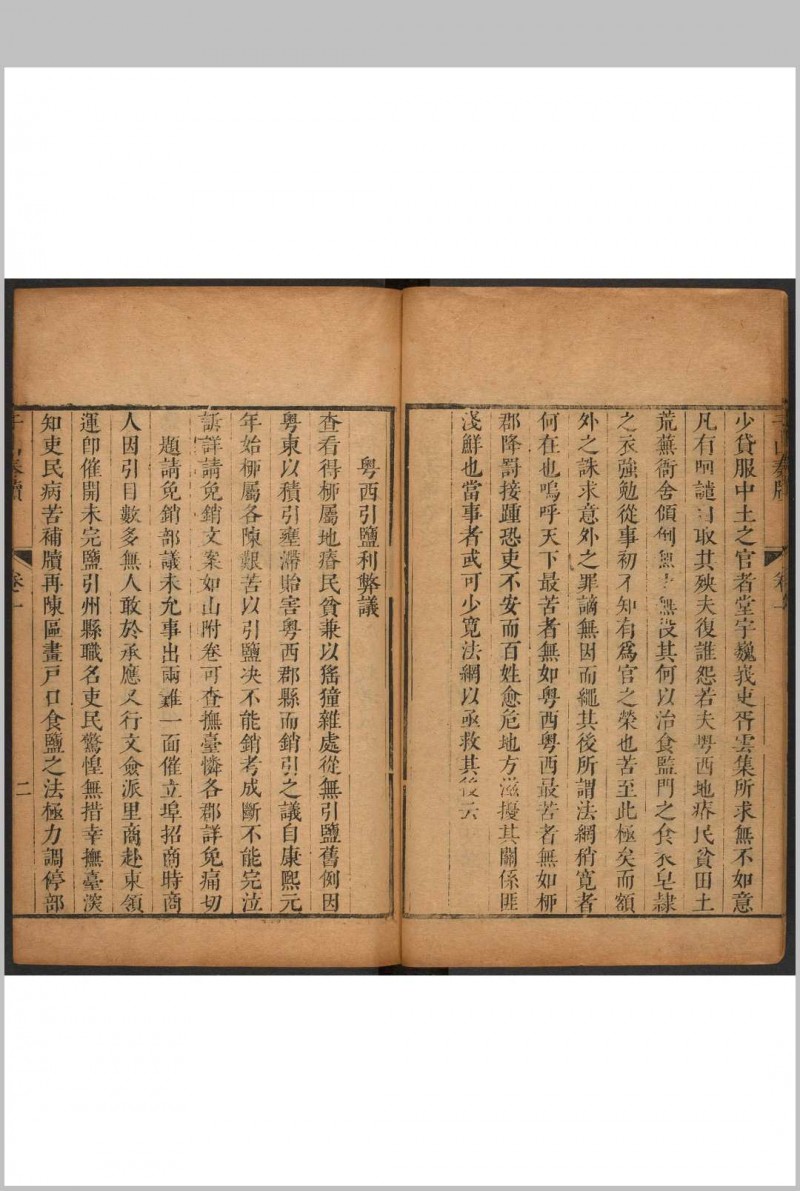 少貸服中土之官者堂宇巍峩吏胥雲集所求無不如意
凡有呵譴自取其殃夫復誰怨若夫粤西地瘠民貧田土
荒蕪衙舍傾倒無設其何以治食監門之食衣皂隸
之衣強勉從事初不知有爲官之榮也苦至此極矣而額
外之誅求意外之罪謫無因而繩其後所謂法網稍寛者
何在也嗚呼天下最苦者無如粤西粤西最苦者無如柳
郡降罸接踵恐吏不安而百姓愈危地方滋擾其關係匪
淺鮮也當事者或可少寛法網以亟救其後云
卷一
粤西引鹽利弊議
查看得柳屬地瘠民貧兼以猺獞雜處從無引鹽舊例因
粤東以積引壅滯貽害粤西郡縣而銷引之議自康熈元
年始柳屬各陳艱苦以引鹽决不能銷考成斷不能完泣
訴詳請免銷文案如山附卷可查撫臺憐各郡詳免痛切
題請免銷部議未允事出兩難一面催立埠招商時商
人因引目數多無人敢於承應又行文僉派里商赴東領
運卽催開未完鹽引州縣職名吏民驚惶無措幸撫臺深
知吏民病苦補牘再陳區畫戸口食鹽之法極力調停部
于山奏牘 卷一 二